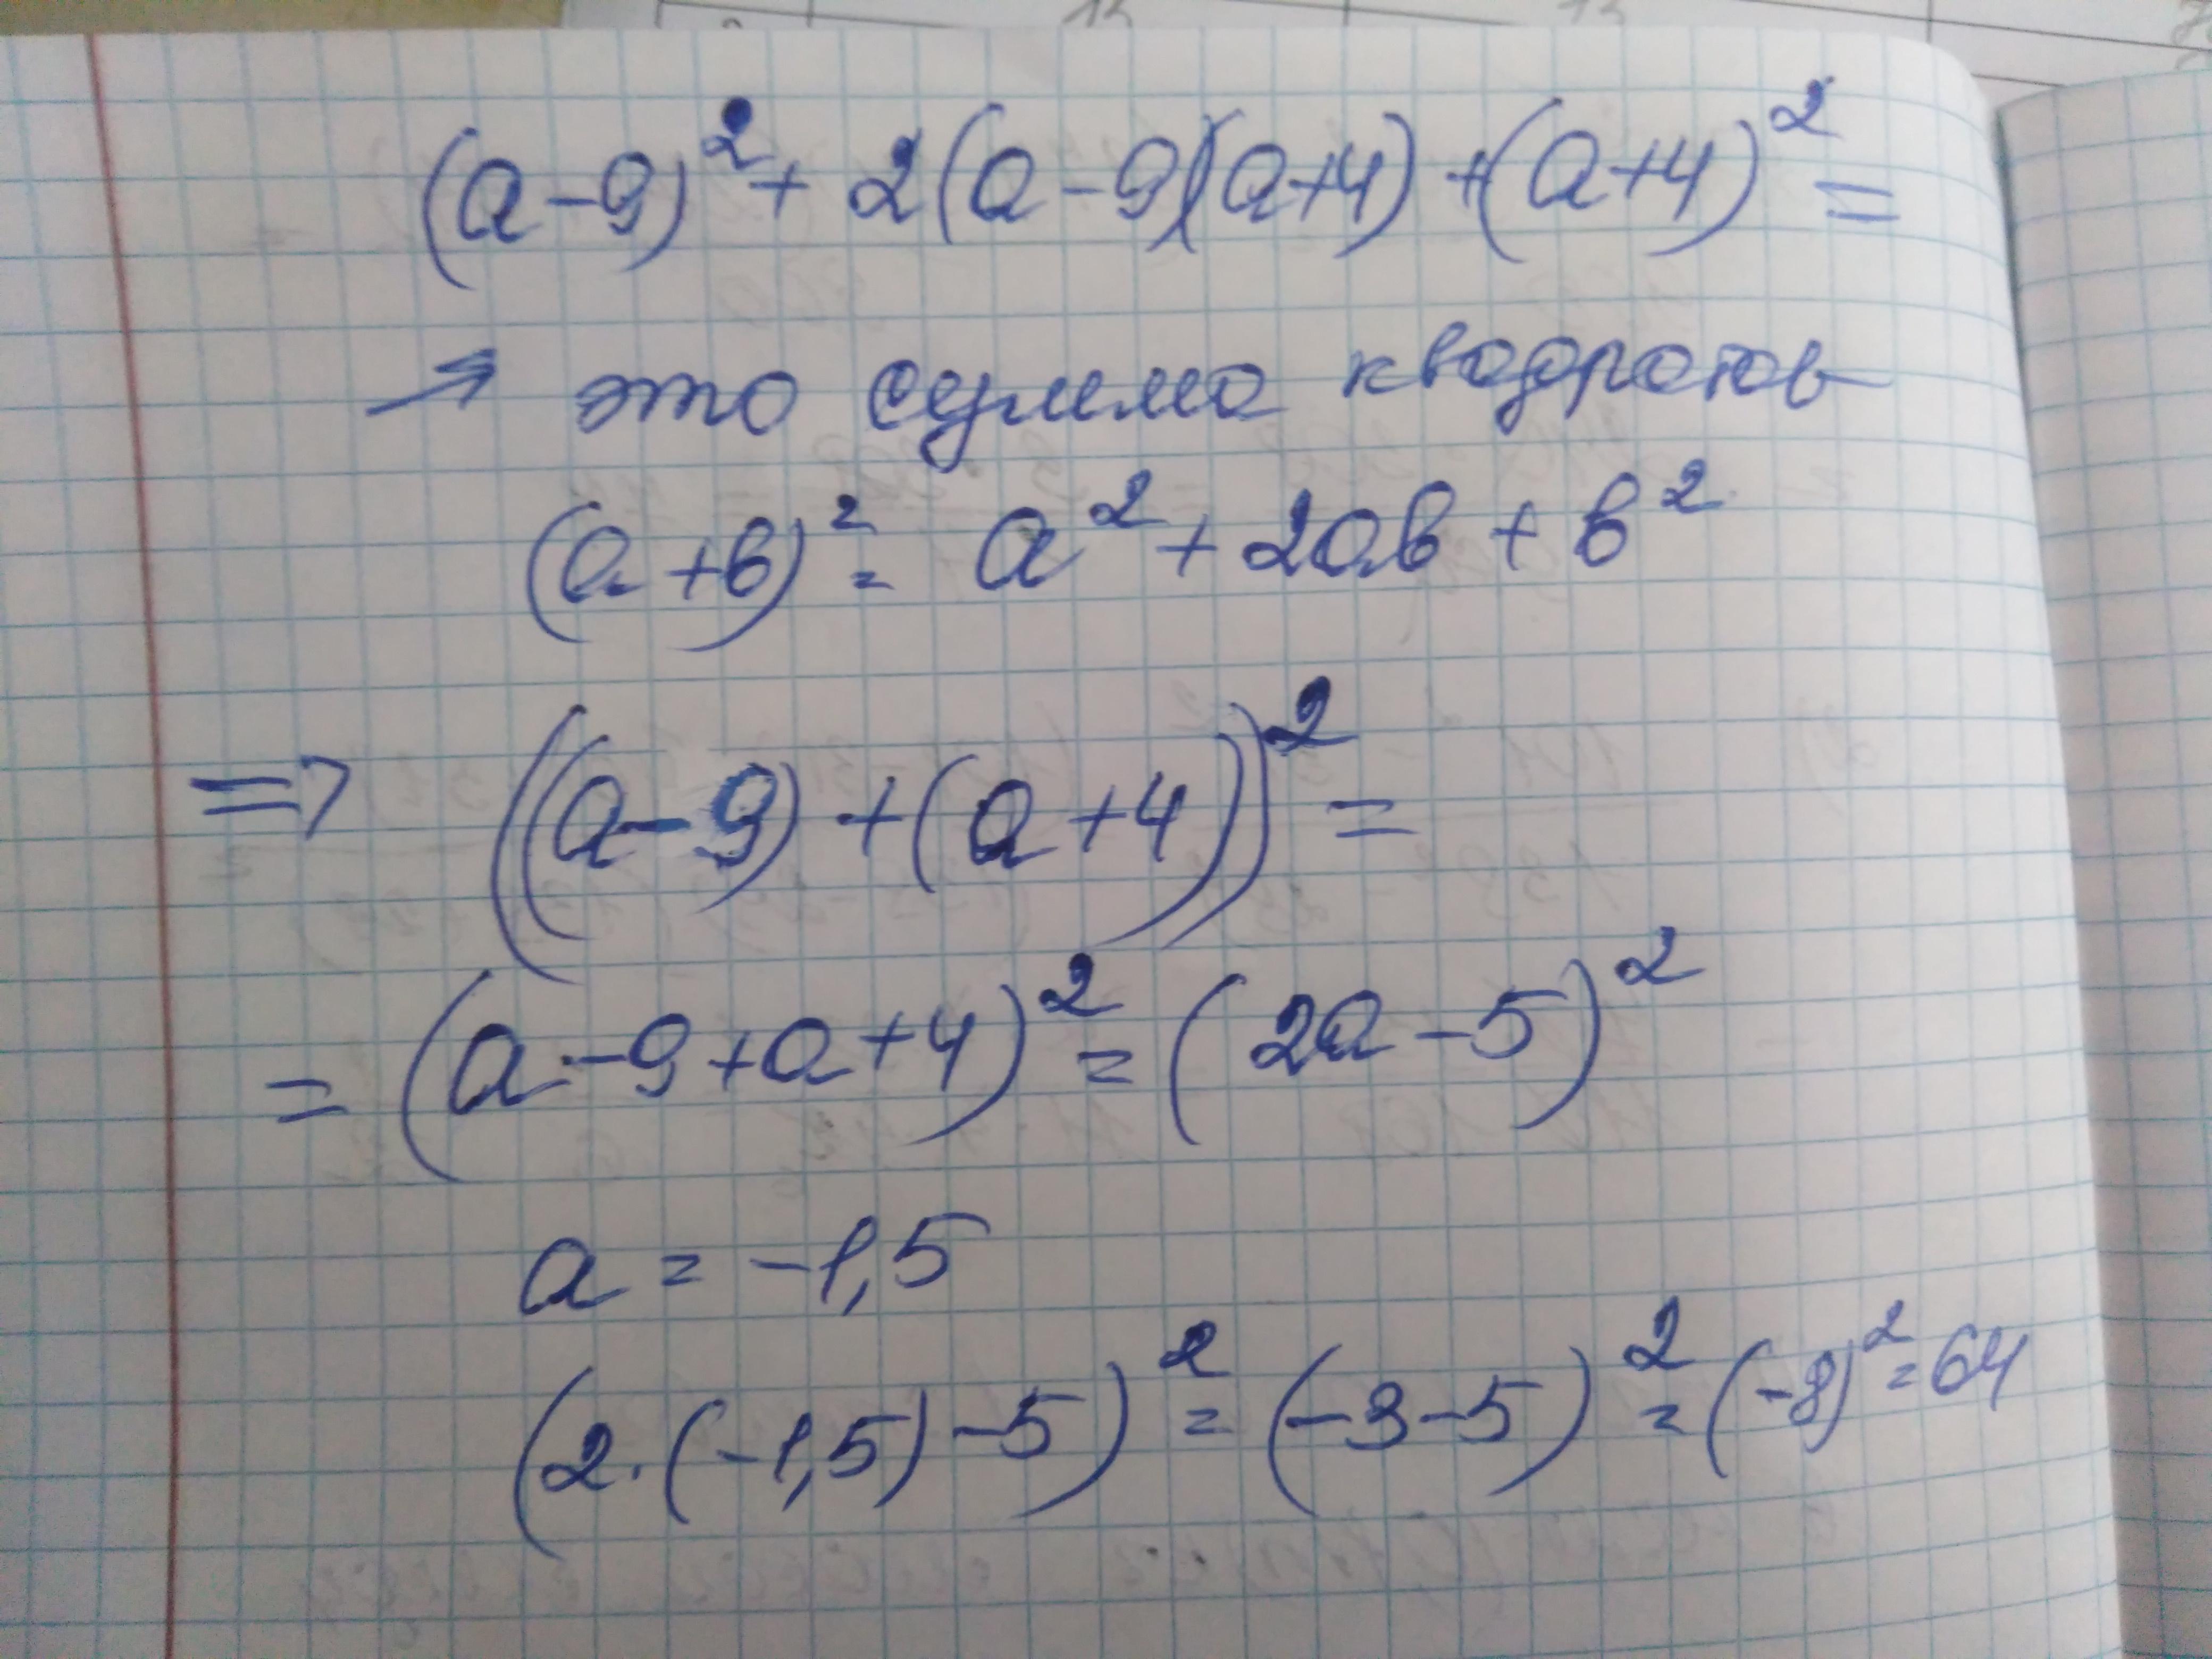 (a-9)² + 2(a-9)(a+4) + (a+4)² =
→ это сумма квадратов
(a+в)² = a² + 2aв + в²
=> ((a-9) + (a+4))² =
= (a-9+a+4)² = (2a-5)²
a = -1,5
(2·(-1,5)-5)² = (-3-5)² = (-8)² = 64